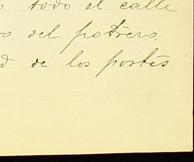 o todo el calle
o del potrero,
d de los postes